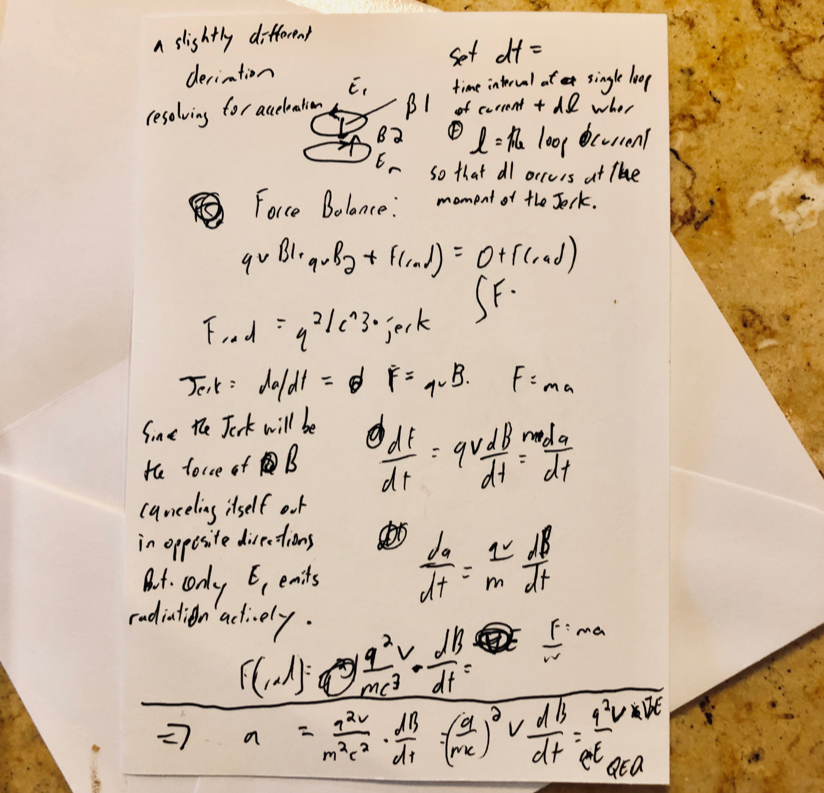 a slightly different
derivation
resolving for acceleration
E₁
B1
B2
set dt =
time interval of a single loop
of current + dl wher
l = the loop current
so that dl occurs at the
moment of the Jerk.
Force Balance:
qvB1 · qvB2 + F(rad) = 0 + F(rad)
∫F·
F rad = q^2/c^3 · jerk
Jerk = da/dt = F = qvB. F = ma
Since the Jerk will be
the force of B
canceling itself out
in opposite directions
But. only E₁ emits
radiation actively.
dF/dt = qv dB/dt = m da/dt
da/dt = qv/m dB/dt
F(rad) = q²v/mc³ · dB/dt =
F = ma
⇒ a = q²v/m²c² · dB/dt = (q/mc)² v dB/dt = q²v
QED